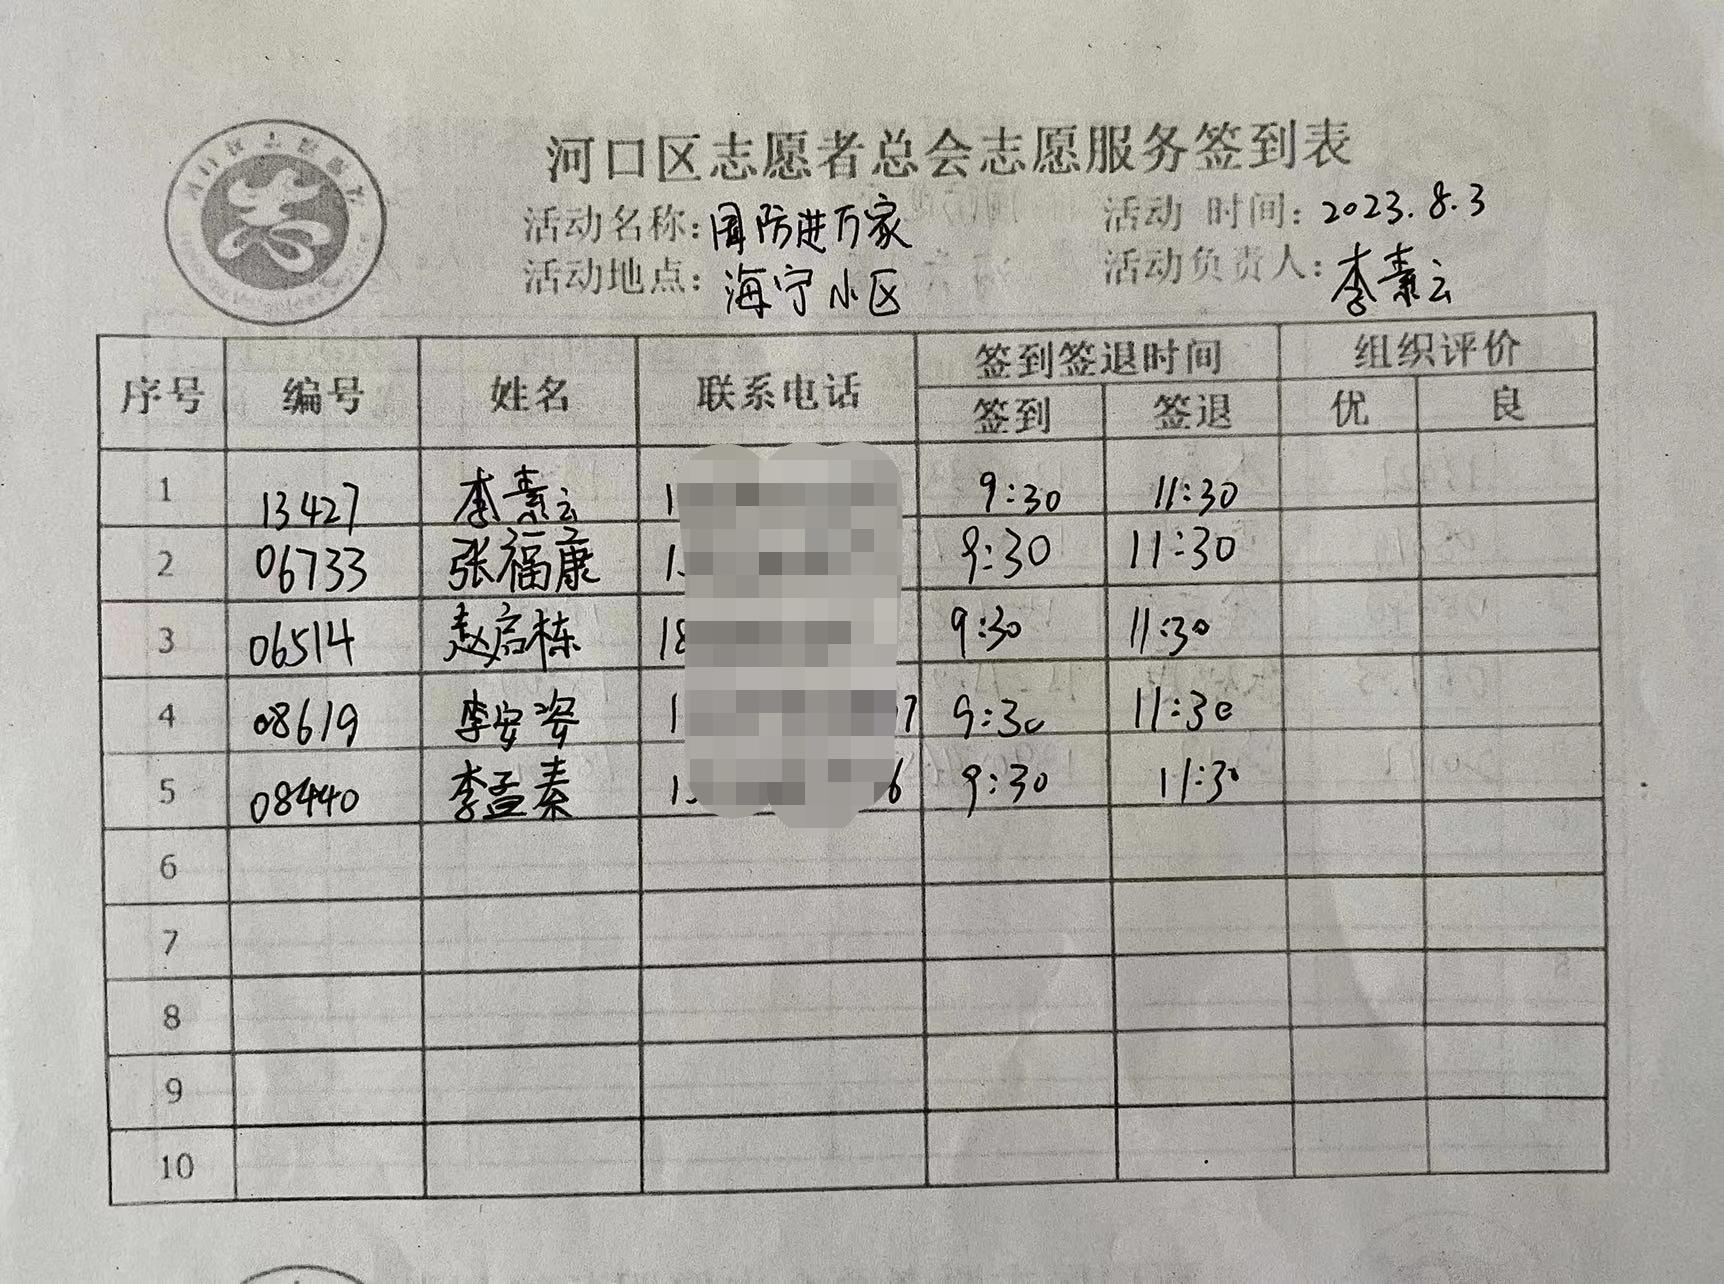 河口区志愿者总会志愿服务签到表
活动名称：国防进万家 活动 时间：2023.8.3
活动地点：海宁小区 活动负责人：李素云
序号 编号 姓名 联系电话 签到签退时间 组织评价
签到 签退 优 良
1 13427 李素云 1 9:30 11:30
2 06733 张福康 1 9:30 11:30
3 06514 赵启栋 18 9:30 11:30
4 08619 李安姿 1 7 9:30 11:30
5 08440 李孟秦 6 9:30 11:30
6
7
8
9
10